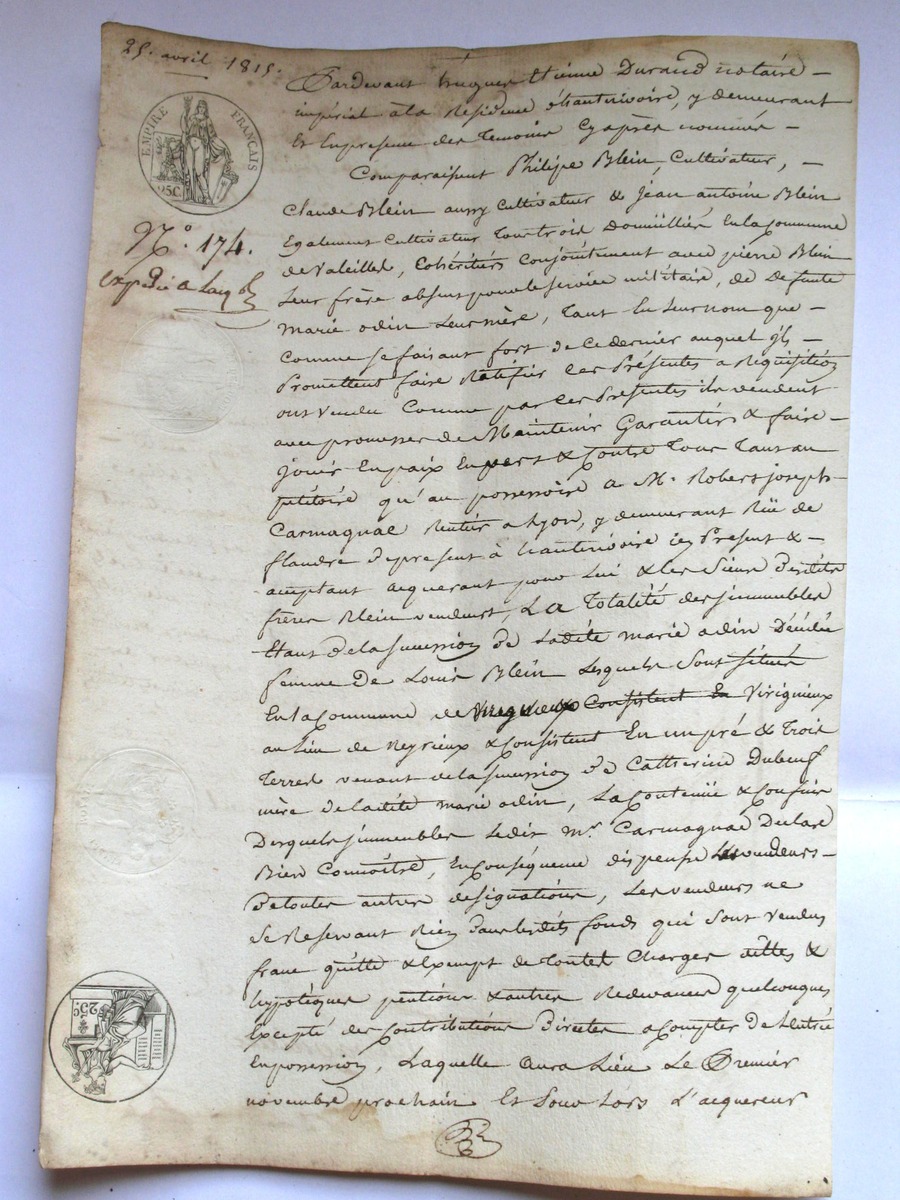 25. avril 1815.
EMPIRE FRANÇAIS
25C.
N.o 174.
expédié a lacq.
Pardevant hugues Etienne Durand notaire
impérial à la Résidence de hauterivoire, y demeurant
Et En presence des Temoins Cyaprès nommés
Comparaissent Philipe Blein, Cultivateur,
Claude Blein aussy Cultivateur & jean antoine Blein
Egalement Cultivateur Tous trois Domiciliés En la Commune
de Valeilles, Cohéritiers Conjointement avec pierre Blein
Leur frère absent pour le service militaire, de Defunte
marie odin Leur mère, Tant En Leur nom que
Comme se faisant fort de Ce dernier auquel ils
Promettent faire Ratifier Ces Présentes a Requisition
ont vendu Comme par Ces Présentes ils vendent
avec promesse de Maintenir Garantir & faire
jouir En paix Envers & Contre Tous Tant au
petitoire qu'au possessoire a M. Robert joseph
Carmagnac Rentier a Lyon, y demeurant Rüe de
flandre De present à hauterivoire icy Present &
acceptant acquerant pour Lui & les Siens Desdits
frères Blein vendeurs, La Totalité des jmmeubles
Etant de la succession de Ladite marie odin Décédée
femme de Louis Blein Lesquels Sont situés
En la Commune de Consistent En Virignieux
au Lieu de Reyrieux & Consistent En un pré & Trois
Terres venant de la succession de Catherine Dubeuf
mère de ladite marie odin, La Contenüe & Confins
Desquels jmmeubles Ledit Mr. Carmagnac Declare
Bien Connoitre, En Conséquence dispense les vendeurs
De toutes autres designations, Les vendeurs ne
Se Reservant Rien Dans lesdits fonds qui Sont vendus
franc quitte & Exempt de Toutes Charges dettes &
hypotèques pentions & autres Redevances quelconques
Excepté des Contributions Directes a Compter de L'entrée
En possession, Laquelle aura Lieu Le Premier
novembre prochain Et Pour Lors L'acquereur
25C.